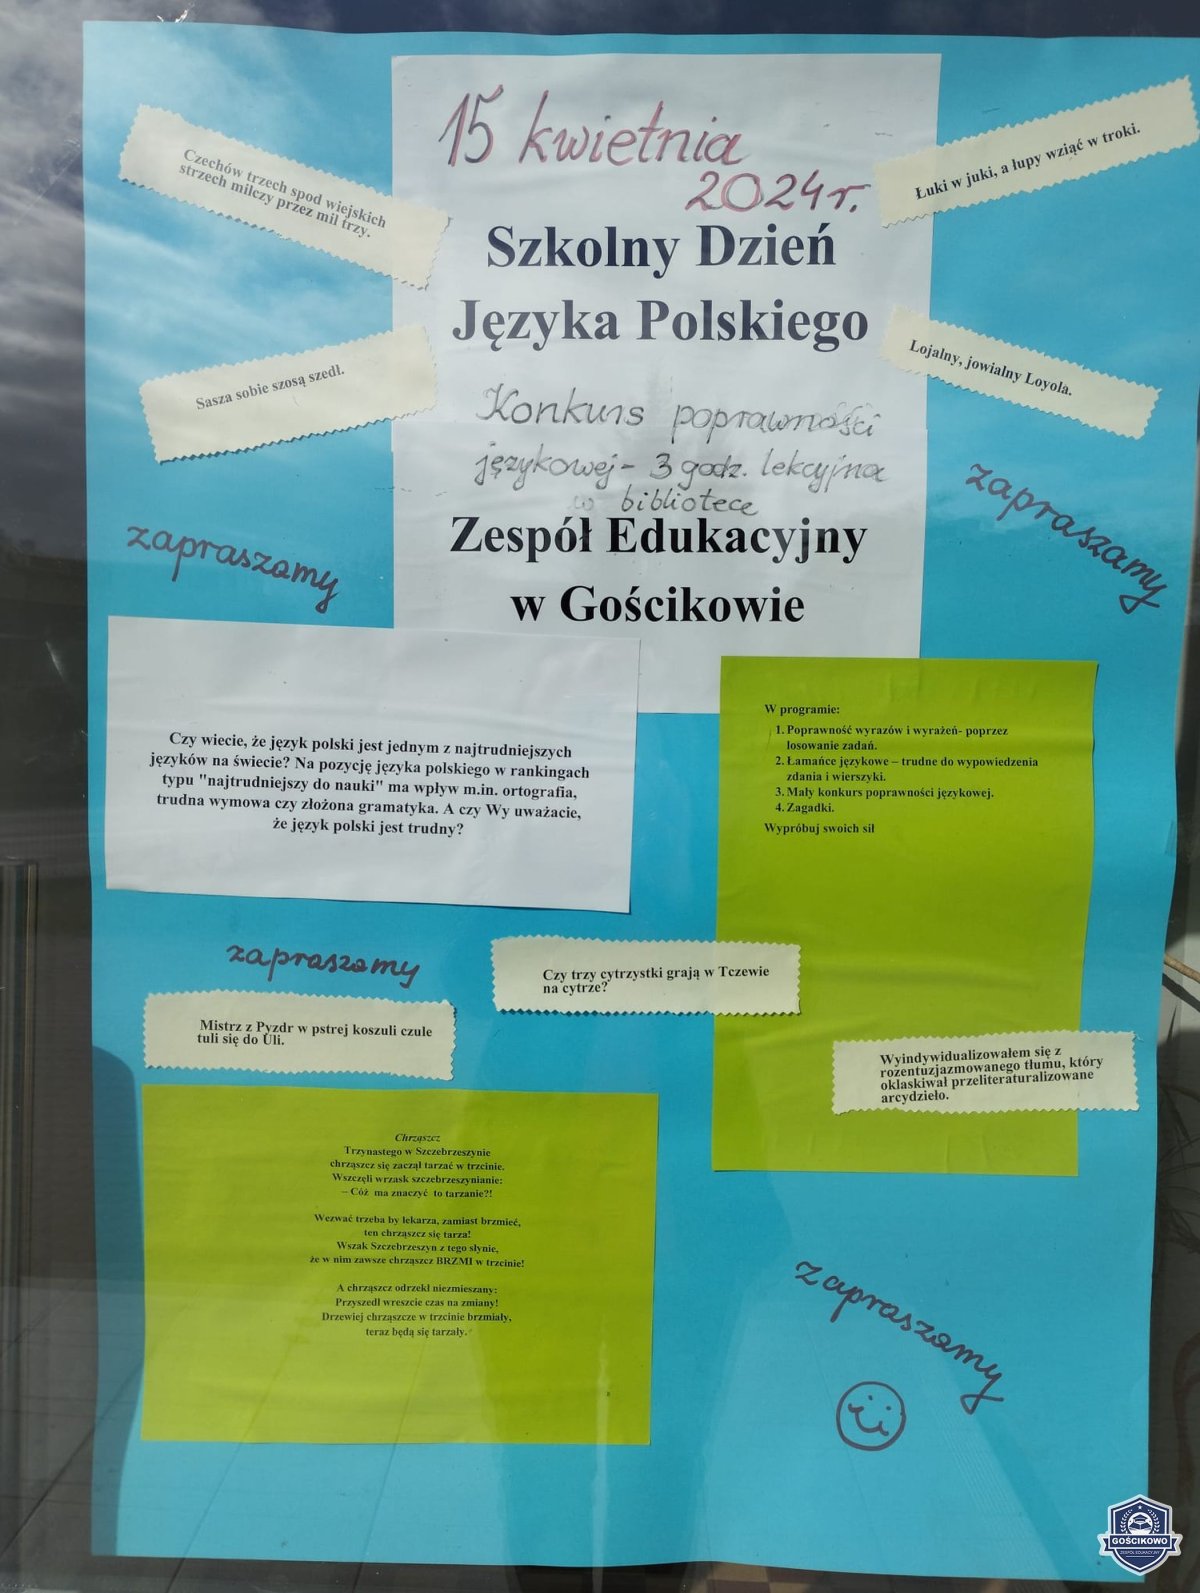 15 kwietnia
2024r.
Szkolny Dzień
Języka Polskiego
Konkurs poprawności
językowej - 3 godz. lekcyjna
w bibliotece
Zespół Edukacyjny
w Gościkowie
Czechów trzech spod wiejskich
strzech milczy przez mil trzy.
Łuki w juki, a łupy wziąć w troki.
Sasza sobie szosą szedł.
Lojalny, jowialny Loyola.
zapraszamy
zapraszamy
Czy wiecie, że język polski jest jednym z najtrudniejszych
języków na świecie? Na pozycję języka polskiego w rankingach
typu "najtrudniejszy do nauki" ma wpływ m.in. ortografia,
trudna wymowa czy złożona gramatyka. A czy Wy uważacie,
że język polski jest trudny?
W programie:
1. Poprawność wyrazów i wyrażeń- poprzez
losowanie zadań.
2. Łamańce językowe – trudne do wypowiedzenia
zdania i wierszyki.
3. Mały konkurs poprawności językowej.
4. Zagadki.
Wypróbuj swoich sił
zapraszamy
Czy trzy cytrzystki grają w Tczewie
na cytrze?
Mistrz z Pyzdr w pstrej koszuli czule
tuli się do Uli.
Wyindywidualizowałem się z
rozentuzjazmowanego tłumu, który
oklaskiwał przeliteraturalizowane
arcydzieło.
Chrząszcz
Trzynastego w Szczebrzeszynie
chrząszcz się zaczął tarzać w trzcinie.
Wszczęli wrzask szczebrzeszynianie:
– Cóż ma znaczyć to tarzanie?!
Wezwać trzeba by lekarza, zamiast brzmieć,
ten chrząszcz się tarza!
Wszak Szczebrzeszyn z tego słynie,
że w nim zawsze chrząszcz BRZMI w trzcinie!
A chrząszcz odrzekł niezmieszany:
Przyszedł wreszcie czas na zmiany!
Drzewiej chrząszcze w trzcinie brzmiały,
teraz będą się tarzały.
zapraszamy
GOŚCIKOWO
ZESPÓŁ EDUKACYJNY